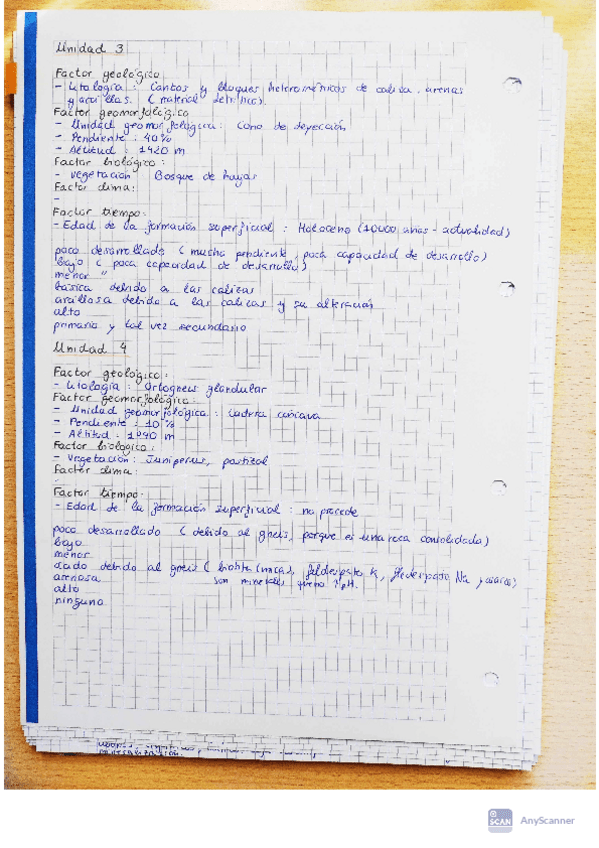 Unidad 3
Factor geológico
- Litología: Cantos y bloques heterométricos de caliza, arenas
y arcillas. (material detrítico)
Factor geomorfológico
- Unidad geomorfológica: Cono de deyección
- Pendiente: 40%
- Altitud: 1420 m
Factor biológico:
- Vegetación: Bosque de hayas
Factor clima:
-
Factor tiempo:
- Edad de la formación superficial: Holoceno (10000 años - actualidad)
poco desarrollado (mucha pendiente, poca capacidad de desarrollo)
bajo (poca capacidad de desarrollo)
menor "
básica debido a las calizas
arcillosa debido a las calizas y su alteración
alto
primario y tal vez secundario
Unidad 4
Factor geológico:
- Litología: Ortogneis glandular
Factor geomorfológico:
- Unidad geomorfológica: Ladera cóncava
- Pendiente: 10%
- Altitud: m
Factor biológico:
- Vegetación: Juniperus, pastizal
Factor clima:
-
Factor tiempo:
- Edad de la formación superficial: no procede
poco desarrollado (debido al gneis, porque es una roca consolidada)
bajo
menor
ácido debido al gneis (biotita (micas), feldespato K, feldespato Na
arenosa son minerales pH.
alto
ninguno
SCAN AnyScanner